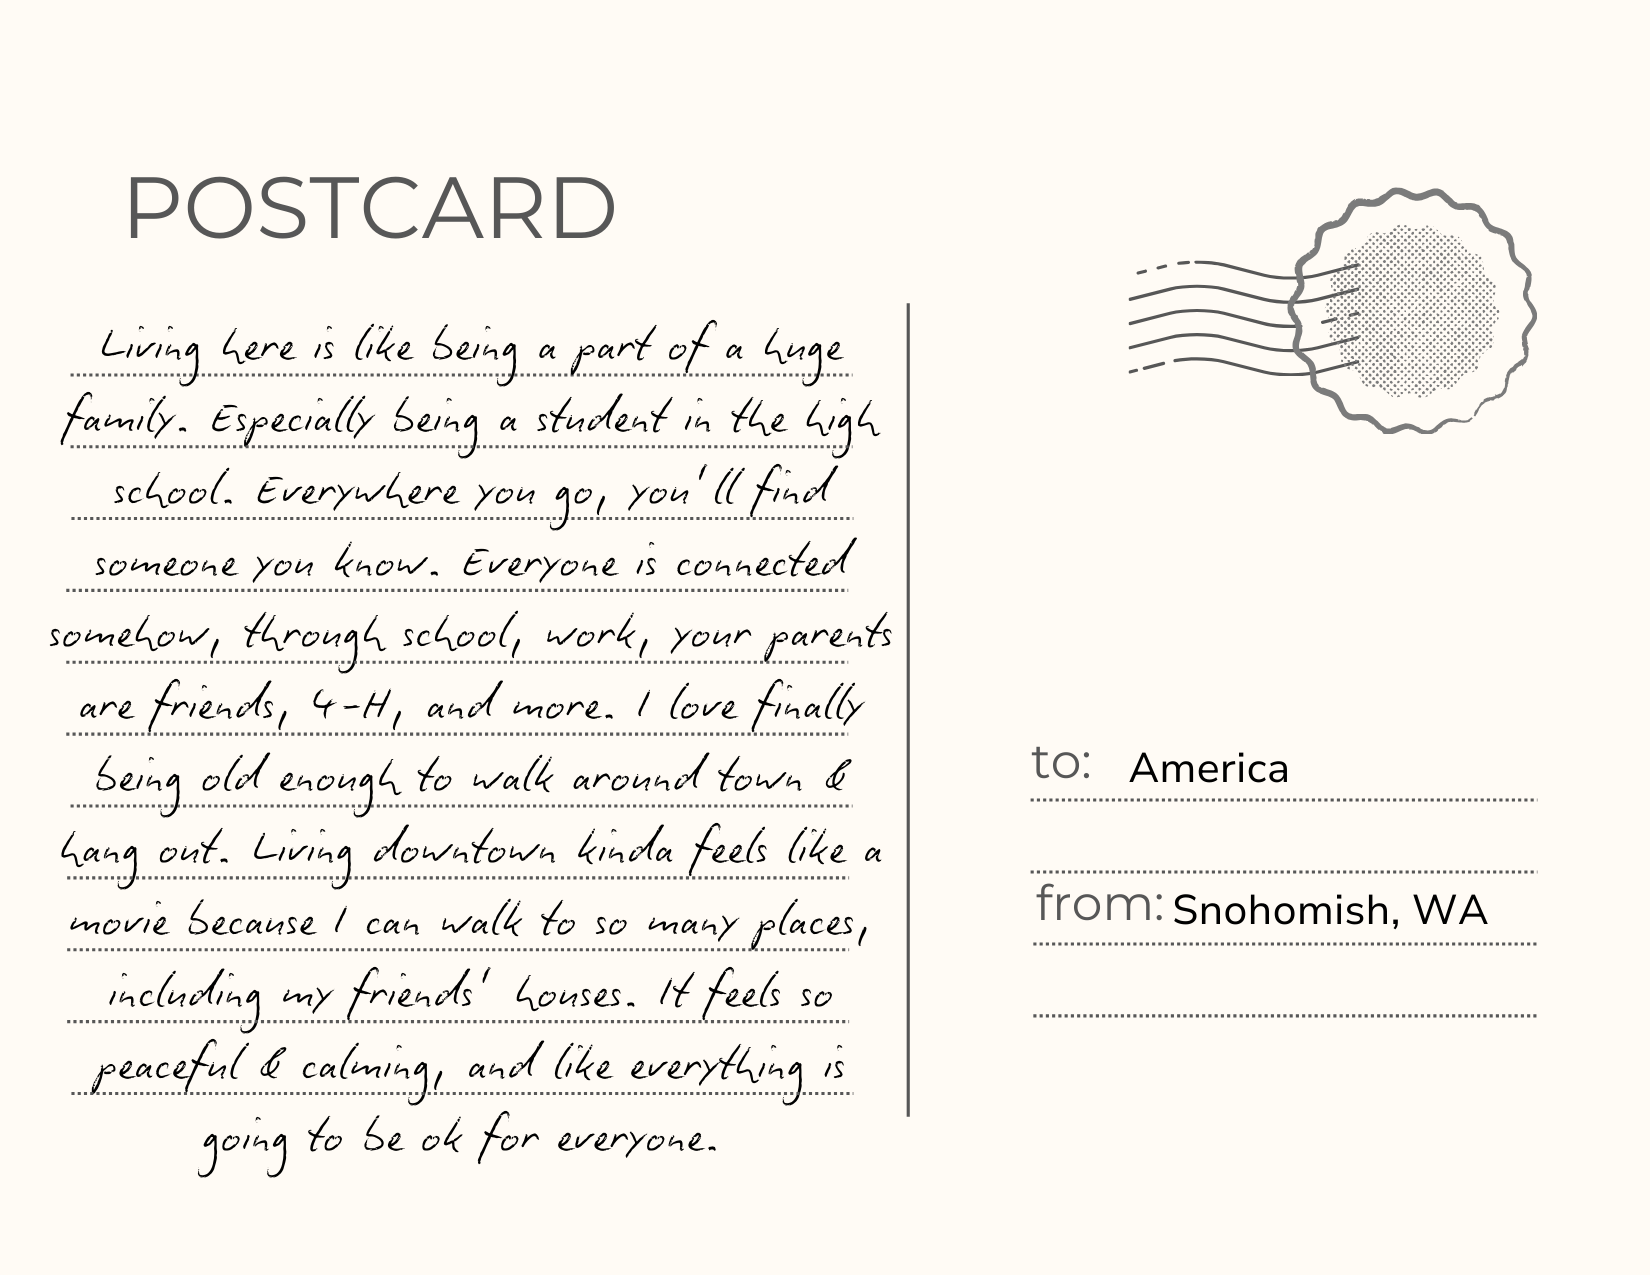 POSTCARD
Living here is like being a part of a huge
family. Especially being a student in the high
school. Everywhere you go, you'll find
someone you know. Everyone is connected
somehow, through school, work, your parents
are friends, 4-H, and more. I love finally
being old enough to walk around town &
hang out. Living downtown kinda feels like a
movie because I can walk to so many places,
including my friends' houses. It feels so
peaceful & calming, and like everything is
going to be ok for everyone.
to: America
from: Snohomish, WA